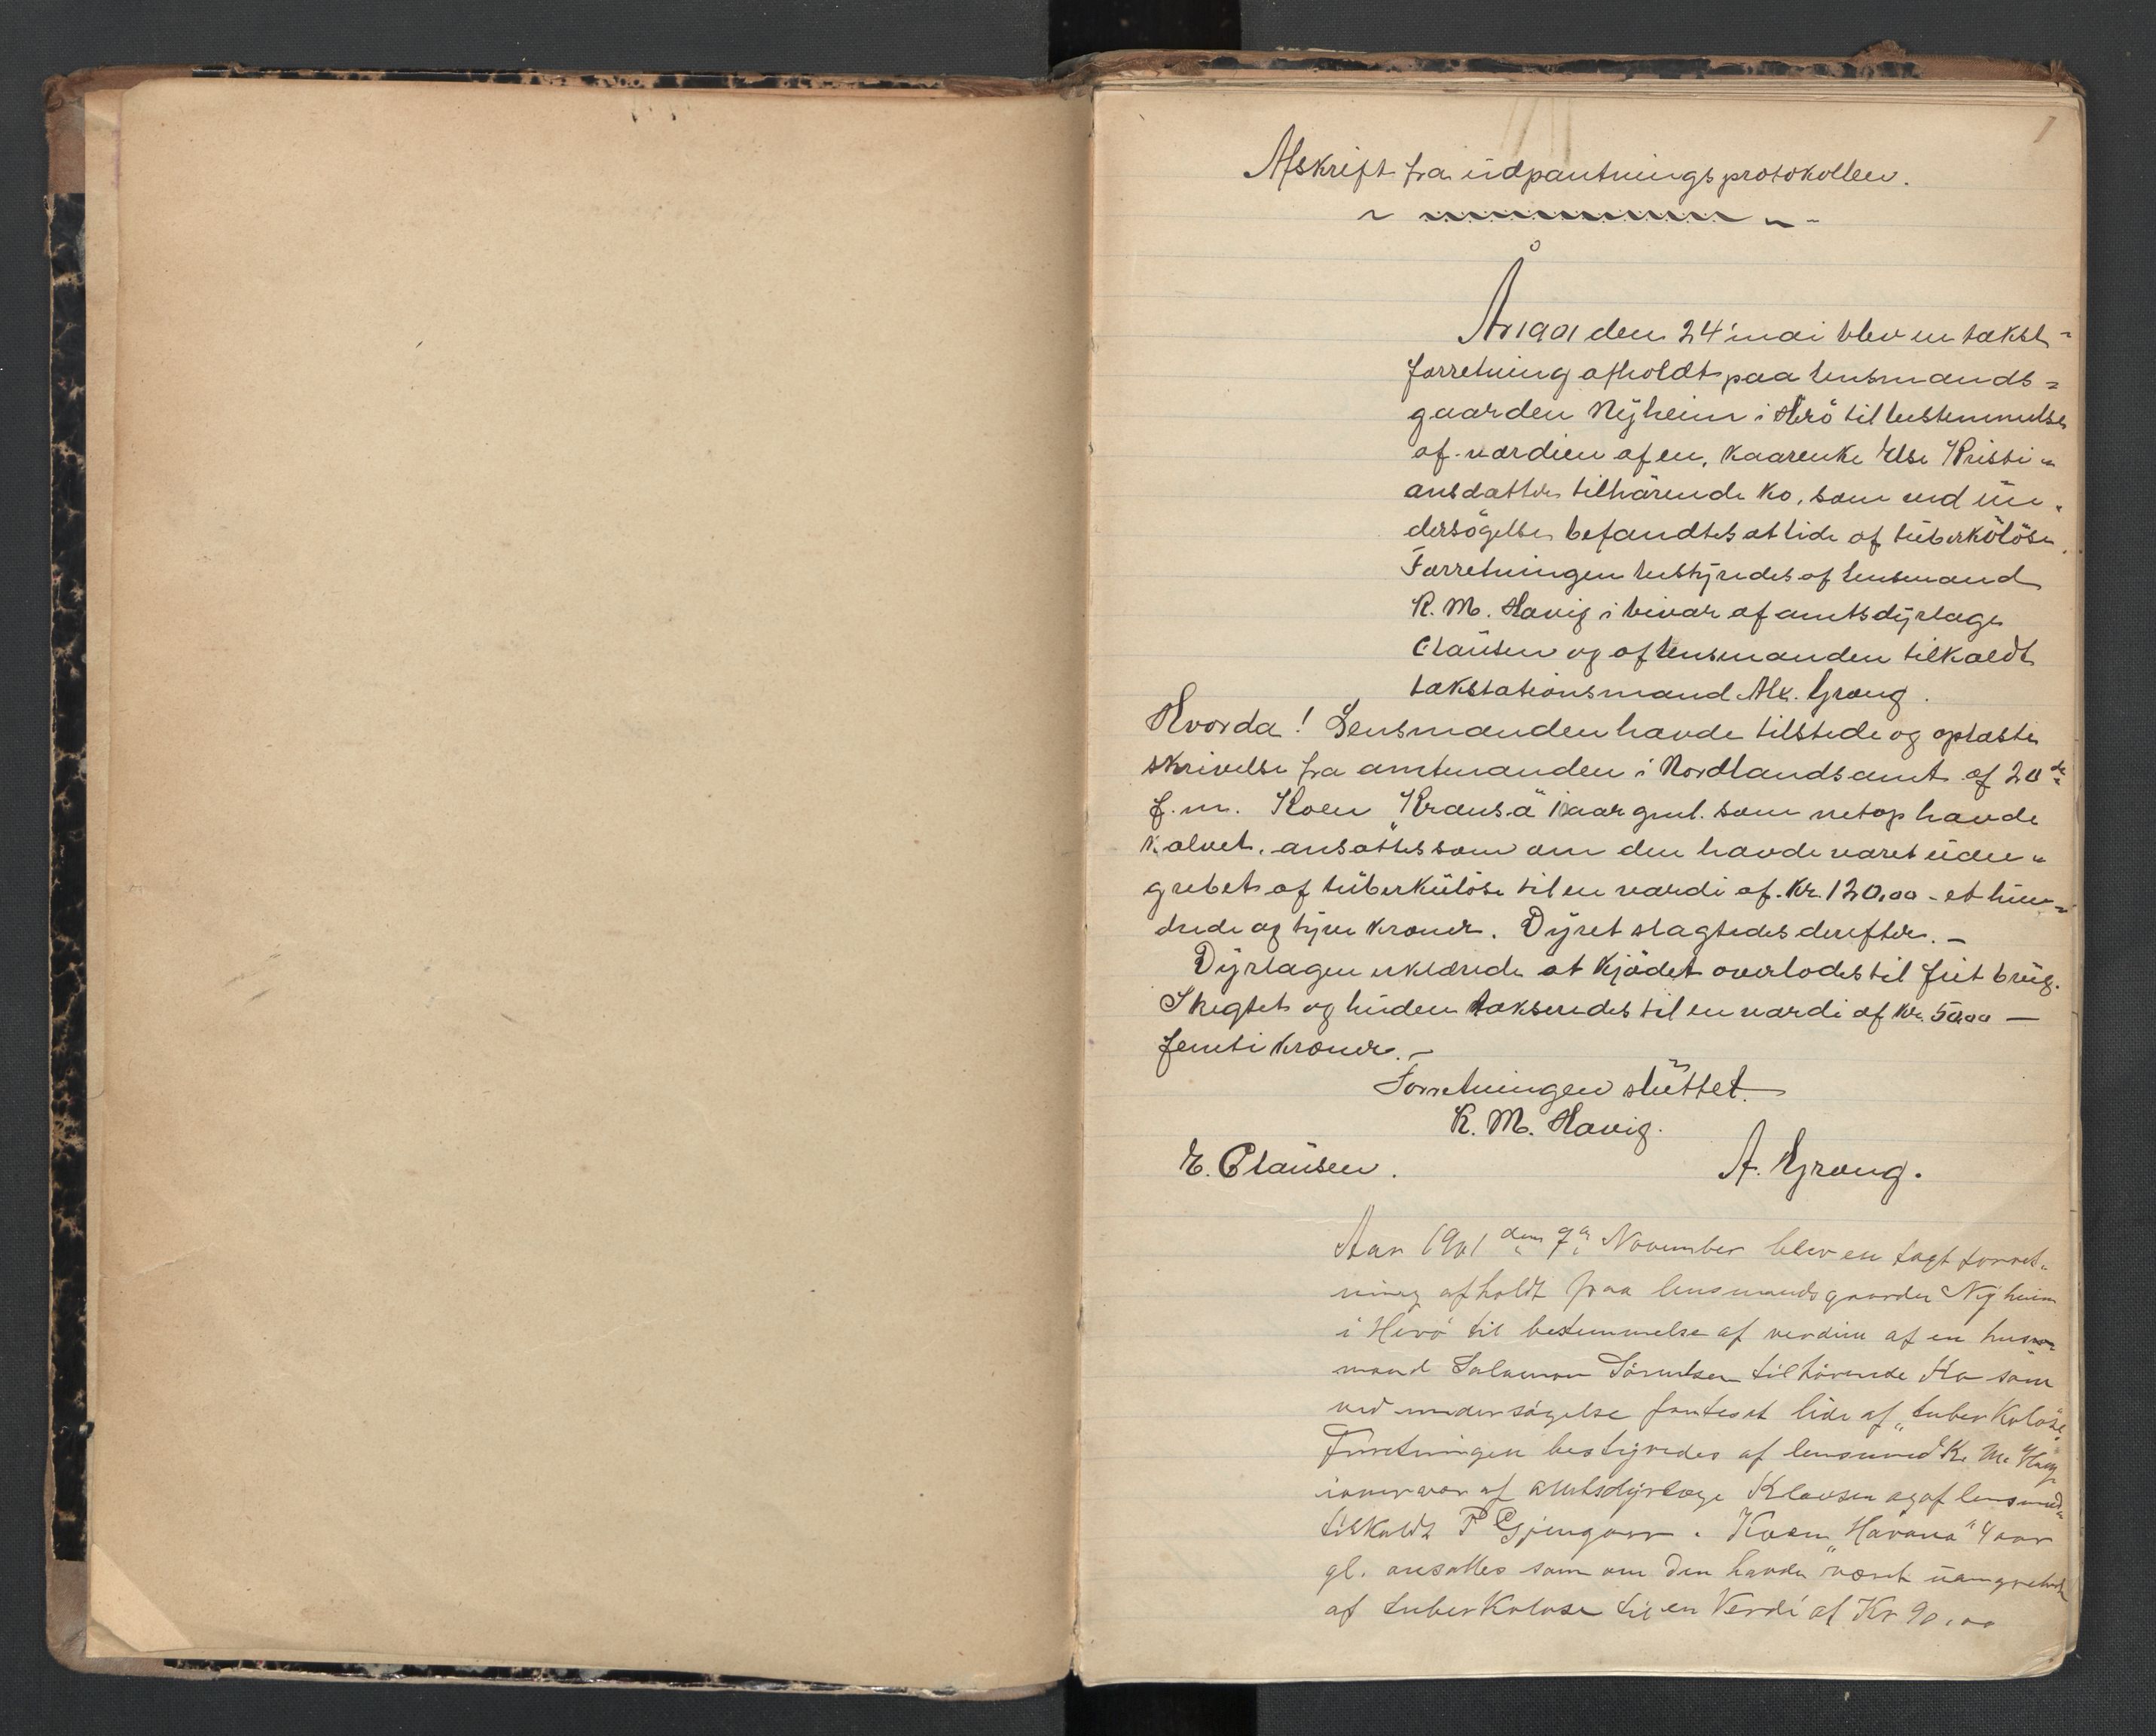 1
Afskrift fra udpantningsprotokollen.
År 1901 den 24' mai blev en takst-
forretning afholdt paa lensmands-
gaarden Nyheim i Herö til bestemmelse
af værdien af en, kaarenke Else Kristi-
ansdatter tilhörende ko, som ved un-
dersögelse befandtes at lide af tüberkülöse.
Forretningen bestyredes af lensmand
K. M. Havig i bivær af amtsdyrlæge
Claüsen og af lensmanden tilkaldt
takstationsmand Alx. Grong.
Hvorda! Lensmanden havde tilstede og oplæste
skrivelse fra amtmanden i Nordlands amt af 20de
f. m. Koen "Kransa" aar gml. som netop havde
kalvet, ansattes som om den havde været uan-
grebet af tüberkülöse til en værdi af Kr. 120,00 - et hün-
drede og tyve kroner. Dyret slagtedes derefter. -
Dyrlægen erklærede at kjödet overlodes til frit brüg.
Slagtet og hüden takseredes til en værdi af Kr. 50,00 —
femti kroner. -
Forretningen slüttet.
K. M. Havig.
E. Claüsen. A. Grong.
Aar 1901 den 7de November blev en tagt forret-
ning afholdt paa lensmandsgaarden Nyheim
i Herö til bestemmelse af verdien af en hus-
mand Salamon Sörentsen tilhörende Ko som
ved undersögelse fantes at lide af "tuberkolose"
Forretningen bestyredes af lensmand K. M. Havig
i overvær af amtsdyrlæge Klausen og af lensmd
tilkaldt P Gjengaar. Koen "Havana" 4 aar
gl. ansattes som om den havde været üangrebet
af tuberkolose til en Verdi af Kr 90,00